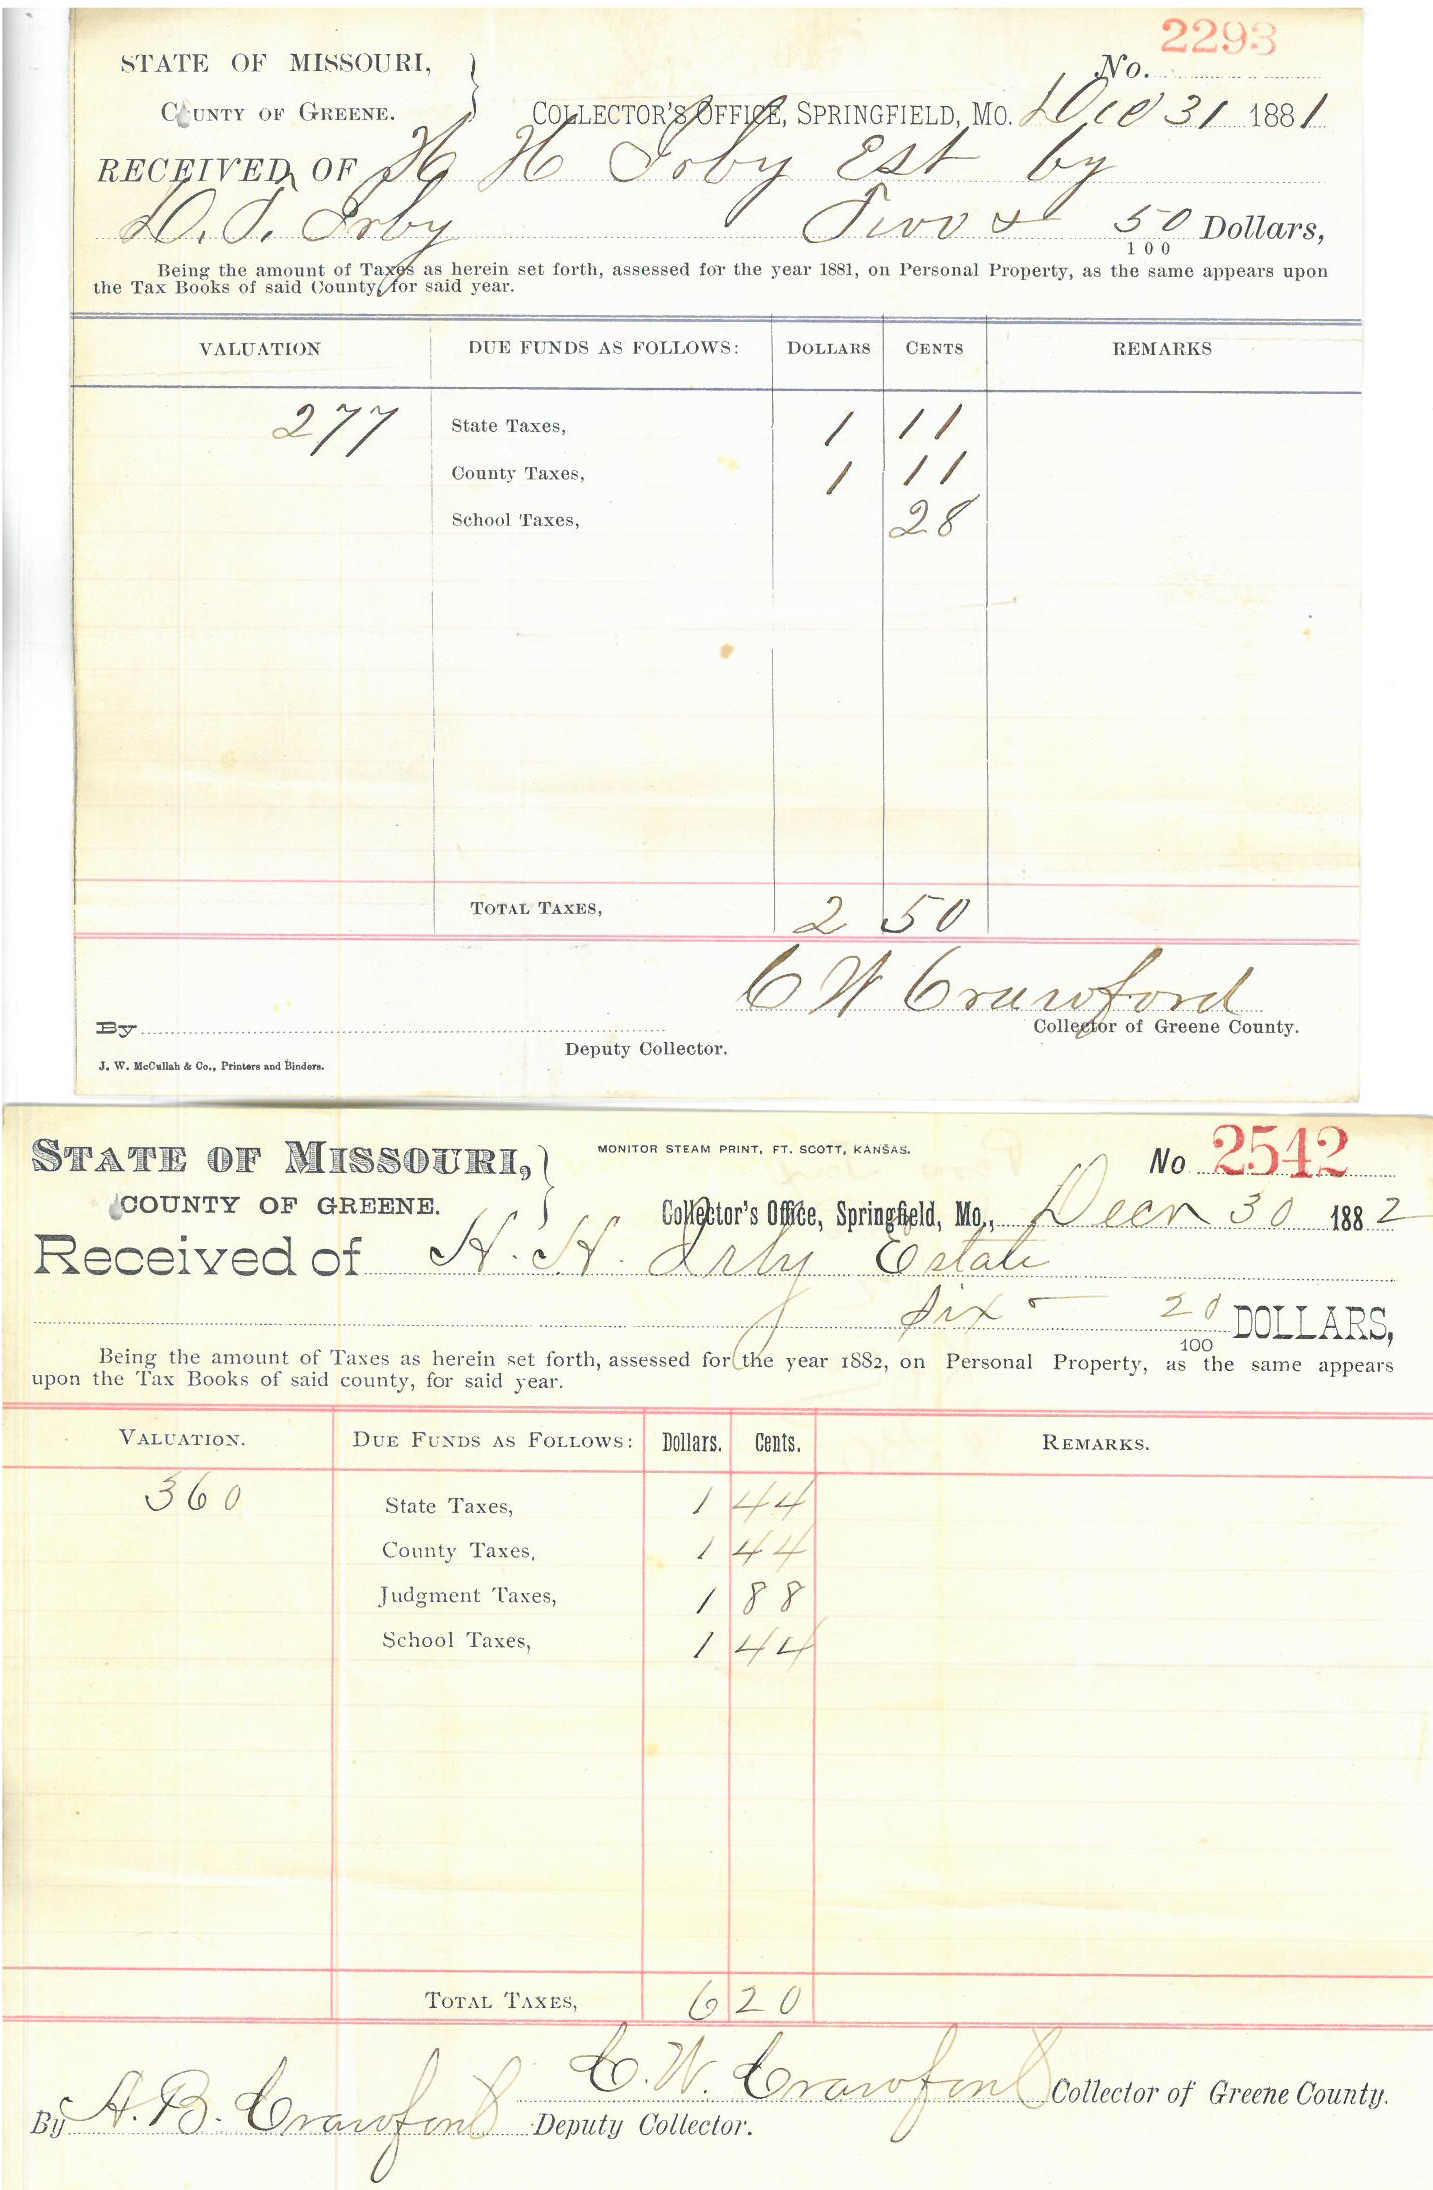 2293
STATE OF MISSOURI, No.
COUNTY OF GREENE. COLLECTOR'S OFFICE, SPRINGFIELD, MO. Dec 31 1881
RECEIVED OF H H Irby Est by
D. T. Irby Two & 50 Dollars,
100
Being the amount of Taxes as herein set forth, assessed for the year 1881, on Personal Property, as the same appears upon
the Tax Books of said County, for said year.
VALUATION DUE FUNDS AS FOLLOWS: DOLLARS CENTS REMARKS
277 State Taxes, 1 11
County Taxes, 1 11
School Taxes, 28
TOTAL TAXES, 2 50
C W Crawford
By Collector of Greene County.
Deputy Collector.
J. W. McCullah & Co., Printers and Binders.
STATE OF MISSOURI, MONITOR STEAM PRINT, FT. SCOTT, KANSAS. No 2542
COUNTY OF GREENE. Collector's Office, Springfield, Mo., Decr 30 1882
Received of H. H. Irby Estate
Six 20 DOLLARS,
100
Being the amount of Taxes as herein set forth, assessed for the year 1882, on Personal Property, as the same appears
upon the Tax Books of said county, for said year.
VALUATION. DUE FUNDS AS FOLLOWS: Dollars. Cents. REMARKS.
360 State Taxes, 1 44
County Taxes, 1 44
Judgment Taxes, 1 88
School Taxes, 1 44
TOTAL TAXES, 6 20
C. W. Crawford Collector of Greene County.
By A. B. Crawford Deputy Collector.